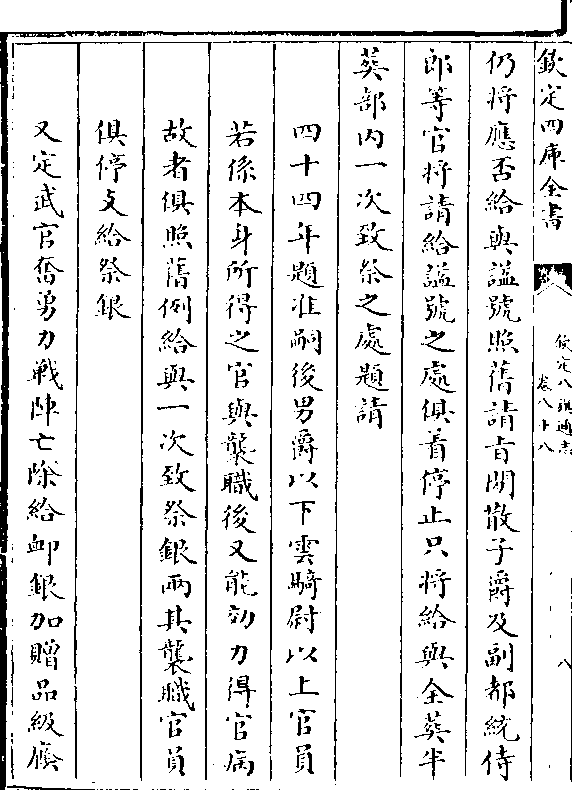 欽定四庫全書
欽定八旗通志
卷八十八
八
仍將應否給與諡號照舊請旨閒散子爵及副都統侍
郎等官將請給諡號之處俱着停止只將給與全葬半
葬部内一次致祭之處題請
四十四年題准嗣後男爵以下雲騎尉以上官員
若係本身所得之官與襲職後又能効力得官病
故者俱照舊例給與一次致祭銀兩其襲職官員
俱停支給祭銀
又定武官奮勇力戰陣亡除給卹銀加贈品級應